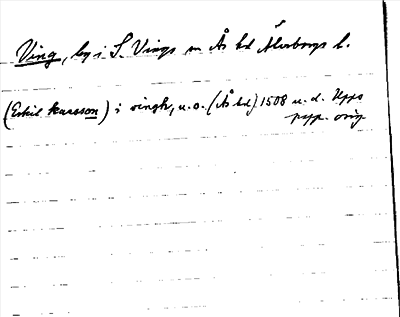 Ving, by i S. Vings sn Ås hd Älvsborgs l.
(Eskil karsson) i vingh, u.o. (Ås hd) 1508 u.d. Upps
pyp. orig